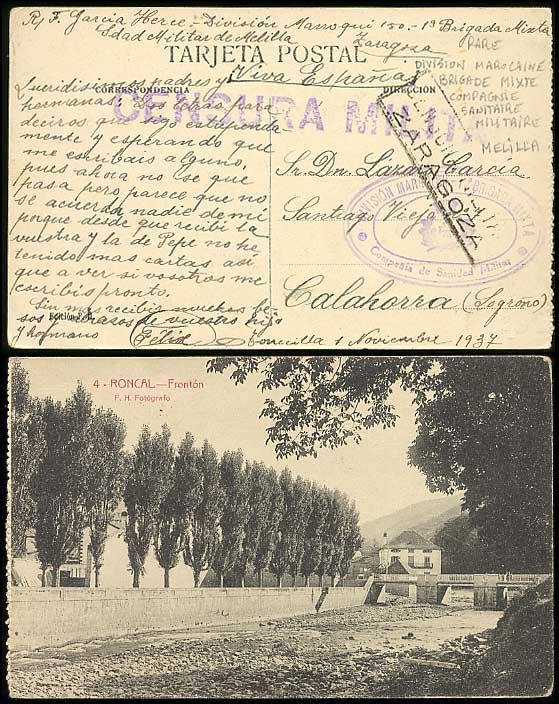 R/ F. García Herce.- División Marroquí 150.- 1ª Brigada Mixta
Sdad Militar de Melilla. Zaragoza
TARJETA POSTAL
¡Viva España!
CORRESPONDENCIA
DIRECCIÓN
RARE
DIVISION MAROCAINE
BRIGADE MIXTE
COMPAGNIE
SANITAIRE
MILITAIRE
MELILLA
CENSURA MILITAR
ZARAGOZA
DIVISIÓN MARROQUÍ BRIGADA MIXTA
Compañía de Sanidad Militar
Queridísimos padres y
hermanas: Dos letras para
deciros que sigo estupenda
mente y esperando que
me escribáis alguno,
pues ahora no se que
pasa pero parece que no
se acuerda nadie de mi
porque desde que recibí la
vuestra y la de Pepe no he
tenido mas cartas, así
que a ver si vosotros me
escribís pronto.
Sin mas recibir muchos be
sos abrazos de vuestro hijo
y hermano Félix
Sr. Dn. Lázaro García
Santiago Viejo
Calahorra (Logroño)
Edición F. H.
Torrecilla 1 Noviembre 1937
4 - RONCAL.—Frontón
F. H. Fotógrafo